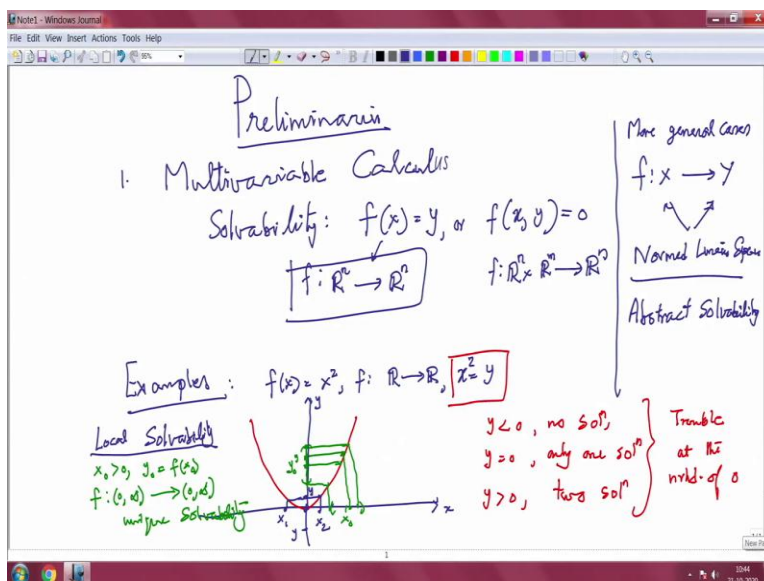 Note1 - Windows Journal
File Edit View Insert Actions Tools Help
95%
Preliminaries
1. Multivariable Calculus
Solvability: f(x) = y, or f(x, y) = 0
f: ℝⁿ → ℝⁿ
f: ℝⁿ × ℝᵐ → ℝⁿ
More general cases
f: X → Y
Normed Linear Spaces
Abstract Solvability
Examples: f(x) = x², f: ℝ → ℝ, x² = y
Local Solvability
x₀ > 0, y₀ = f(x₀)
f: (0, ∞) → (0, ∞)
unique Solvability
y
y₀
x
x₁
x₂
x₀
y
y < 0, no solⁿ,
y = 0, only one solⁿ
y > 0, two solⁿ
Trouble
at the
nrhd. of 0
1
1/1
10:44
21-10-2020